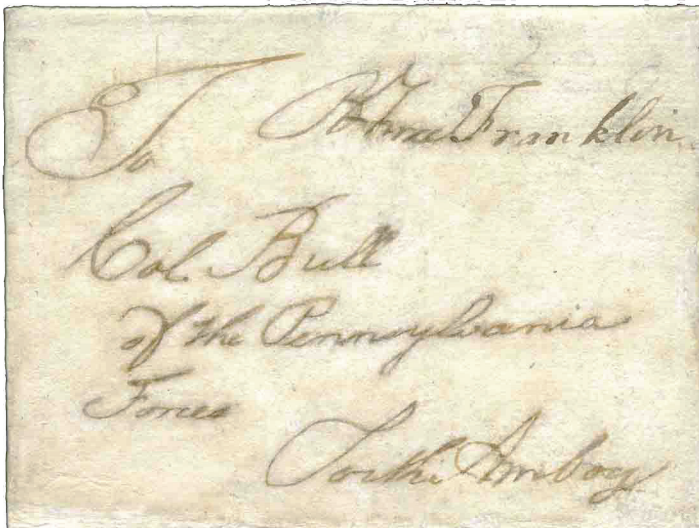 To B Free Franklin
Col. Bull
of the Pennsylvania
Forces
Amboy